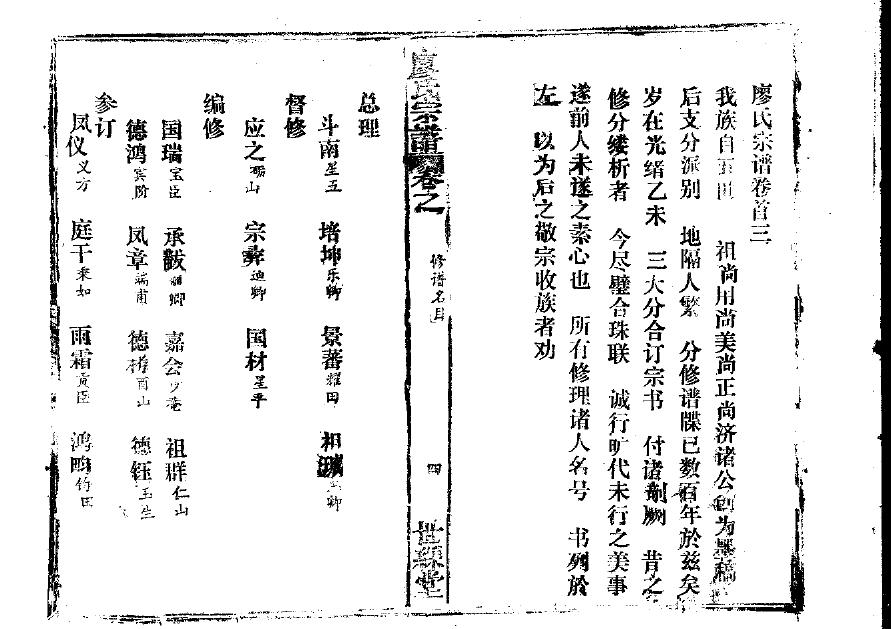 廖氏宗谱卷首三
我族自五 祖尚用尚美尚正尚济诸公创为墨稿
后支分派别 地隔人繁 分修谱牒已数百年於兹矣
岁在光绪乙未 三大分合订宗书 付诸剞厥 昔之
修分缕析者 今尽璧合珠联 诚行旷代未行之美事
遂前人未遂之素心也 所有修理诸人名号 书列於
左 以为后之敬宗收族者劝
廖氏宗谱 卷之
修谱名目
四
世䌽堂
总理
斗南星五 培坤乐卿 景蕃耀田 相 卿
督修
应之砺山 宗彝迪卿 国材星平
编修
国瑞宝臣 承黻 卿 嘉会少庵 祖群仁山
德鸿宾阶 凤章瑞甫 德 酉山 德钰玉生
参订
凤仪义方 庭干秉如 雨霜寅臣 鸿鸣竹田